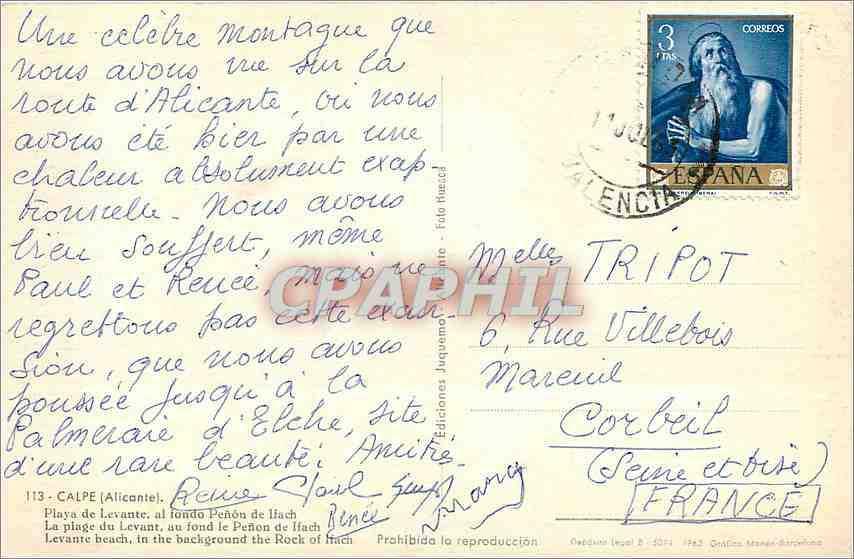 Une célèbre montagne que
nous avons vue sur la
route d'Alicante, où nous
avons été hier par une
chaleur absolument exap-
tionnelle - Nous avons
bien souffert, même
Paul et Renée, mais ne
regrettons pas cette excur-
sion, que nous avons
poussée jusqu'à la
Palmeraie d'Elche, site
d'une rare beauté. Amitiés
Renée
113 - CALPE (Alicante).
Playa de Levante, al fondo Peñón de Ifach
La plage du Levant, au fond le Peñon de Ifach
Levante beach, in the background the Rock of Ifach
Prohibida la reproducción
Ediciones Juquemo - Alicante - Foto Huesca
CPAPHIL
3
PTAS
CORREOS
ESPAÑA
VALENCIA
Melles TRIPOT
6, Rue Villebois
Mareuil
Corbeil
(Seine et Oise)
FRANCE
Depósito Legal B - 5094 - 1963 Gráficas Manén-Barcelona